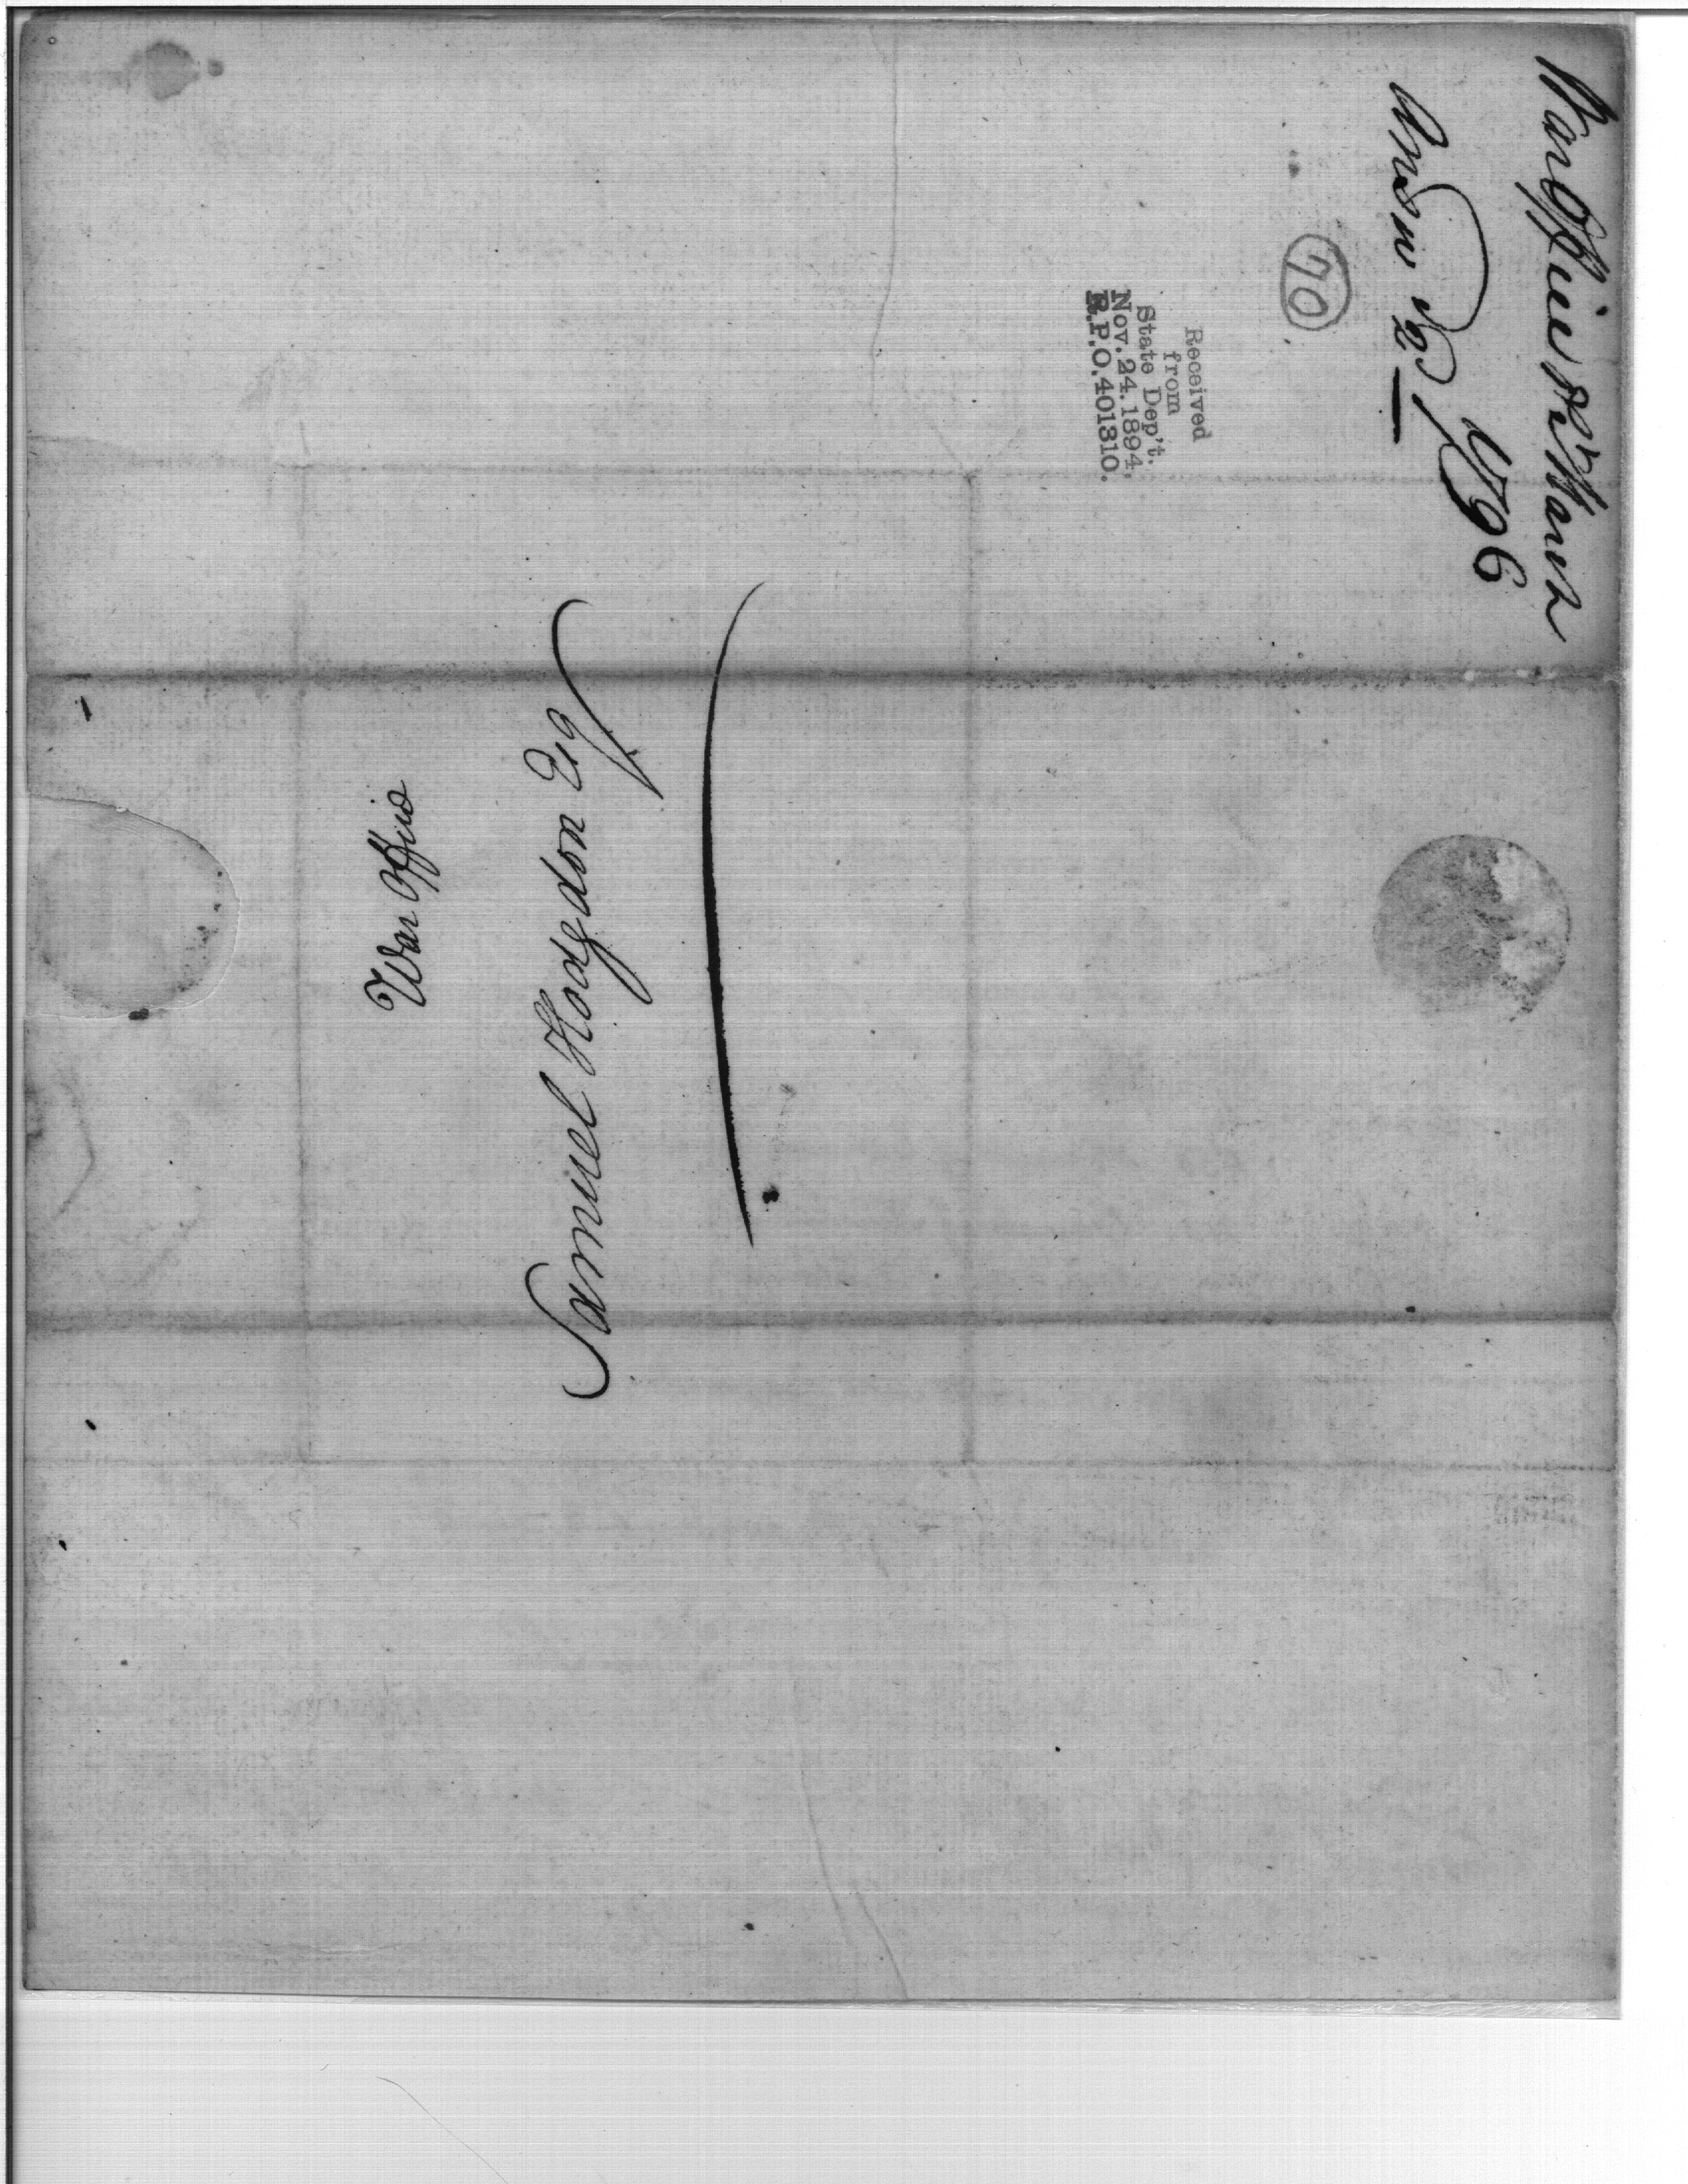 War Office
Samuel Hodgdon Esq
War Office March
1796
Answd
70
Received
from
State Dep't.
Nov. 24. 1894.
R.P.O. 401310.